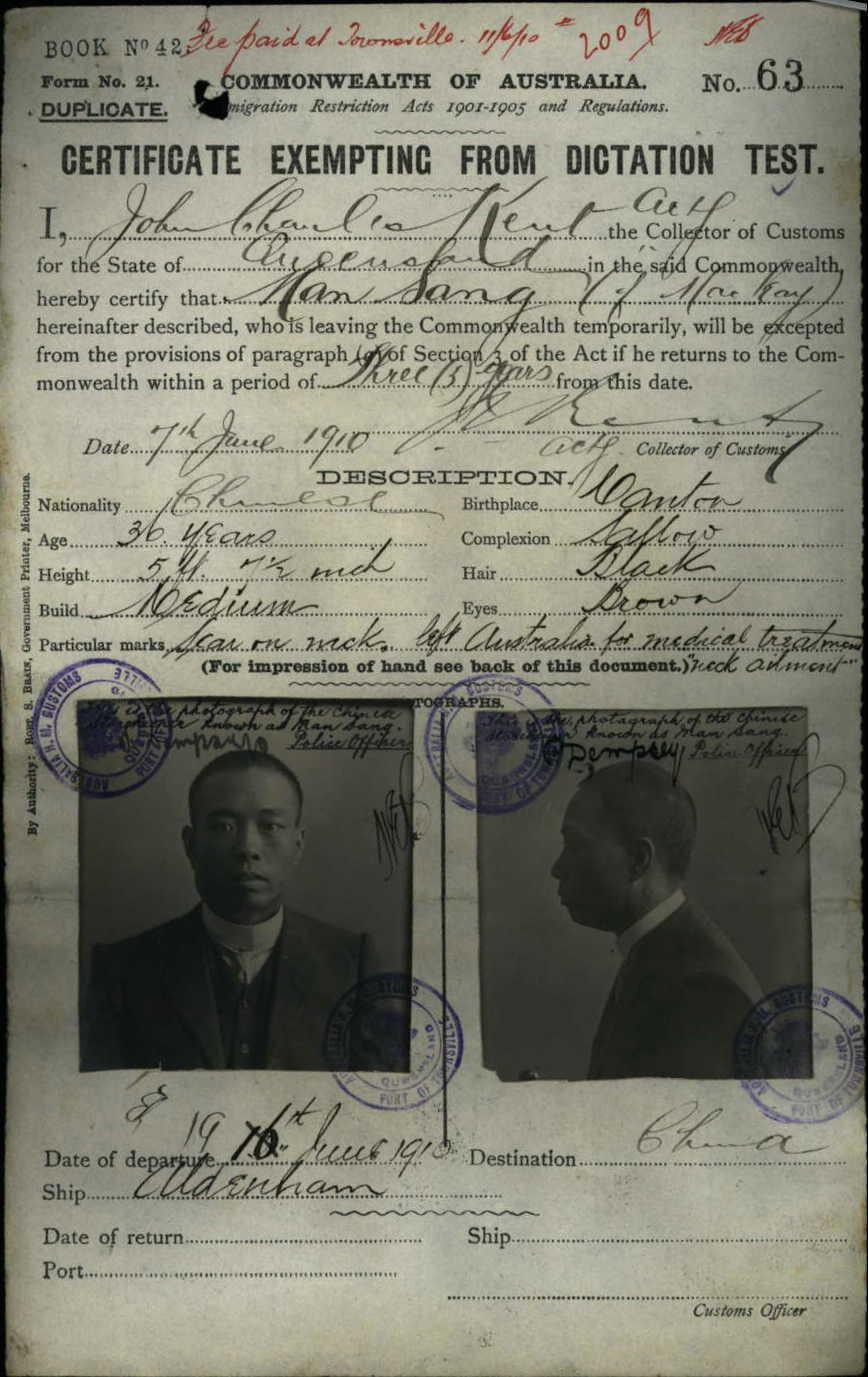 BOOK Nº 42. Fee paid at Townsville. 11/6/10 2009
Form No. 21. COMMONWEALTH OF AUSTRALIA. No. 63
DUPLICATE. migration Restriction Acts 1901-1905 and Regulations.
CERTIFICATE EXEMPTING FROM DICTATION TEST.
I, John Charles Kent Actg the Collector of Customs
for the State of Queensland in the said Commonwealth,
hereby certify that Man Sang (of Mackay)
hereinafter described, who is leaving the Commonwealth temporarily, will be excepted
from the provisions of paragraph (a) of Section 3 of the Act if he returns to the Com-
monwealth within a period of Three (3) years from this date.
Kent
Date 7th June 1910 Actg. Collector of Customs
DESCRIPTION.
Nationality Chinese Birthplace Canton
Age 36 years Complexion Sallow
Height 5 ft. 7½ inch Hair Black
Build Medium Eyes Brown
Particular marks Scar on neck. left Australia for medical treatment
(For impression of hand see back of this document.) "neck ailment"
TOGRAPHS.
This is the photograph of the Chinese
known as Man Sang.
Dempsey Police Officer
This is the photograph of the Chinese
known as Man Sang.
Dempsey Police Officer
AUSTRALIA H.M. CUSTOMS
PORT OF TOWNSVILLE
QUEENSLAND
By Authority: ROBT. S. BRAIN, Government Printer, Melbourne.
Date of departure 19 16th June 1910 Destination China
Ship Aldenham
Date of return Ship
Port
Customs Officer